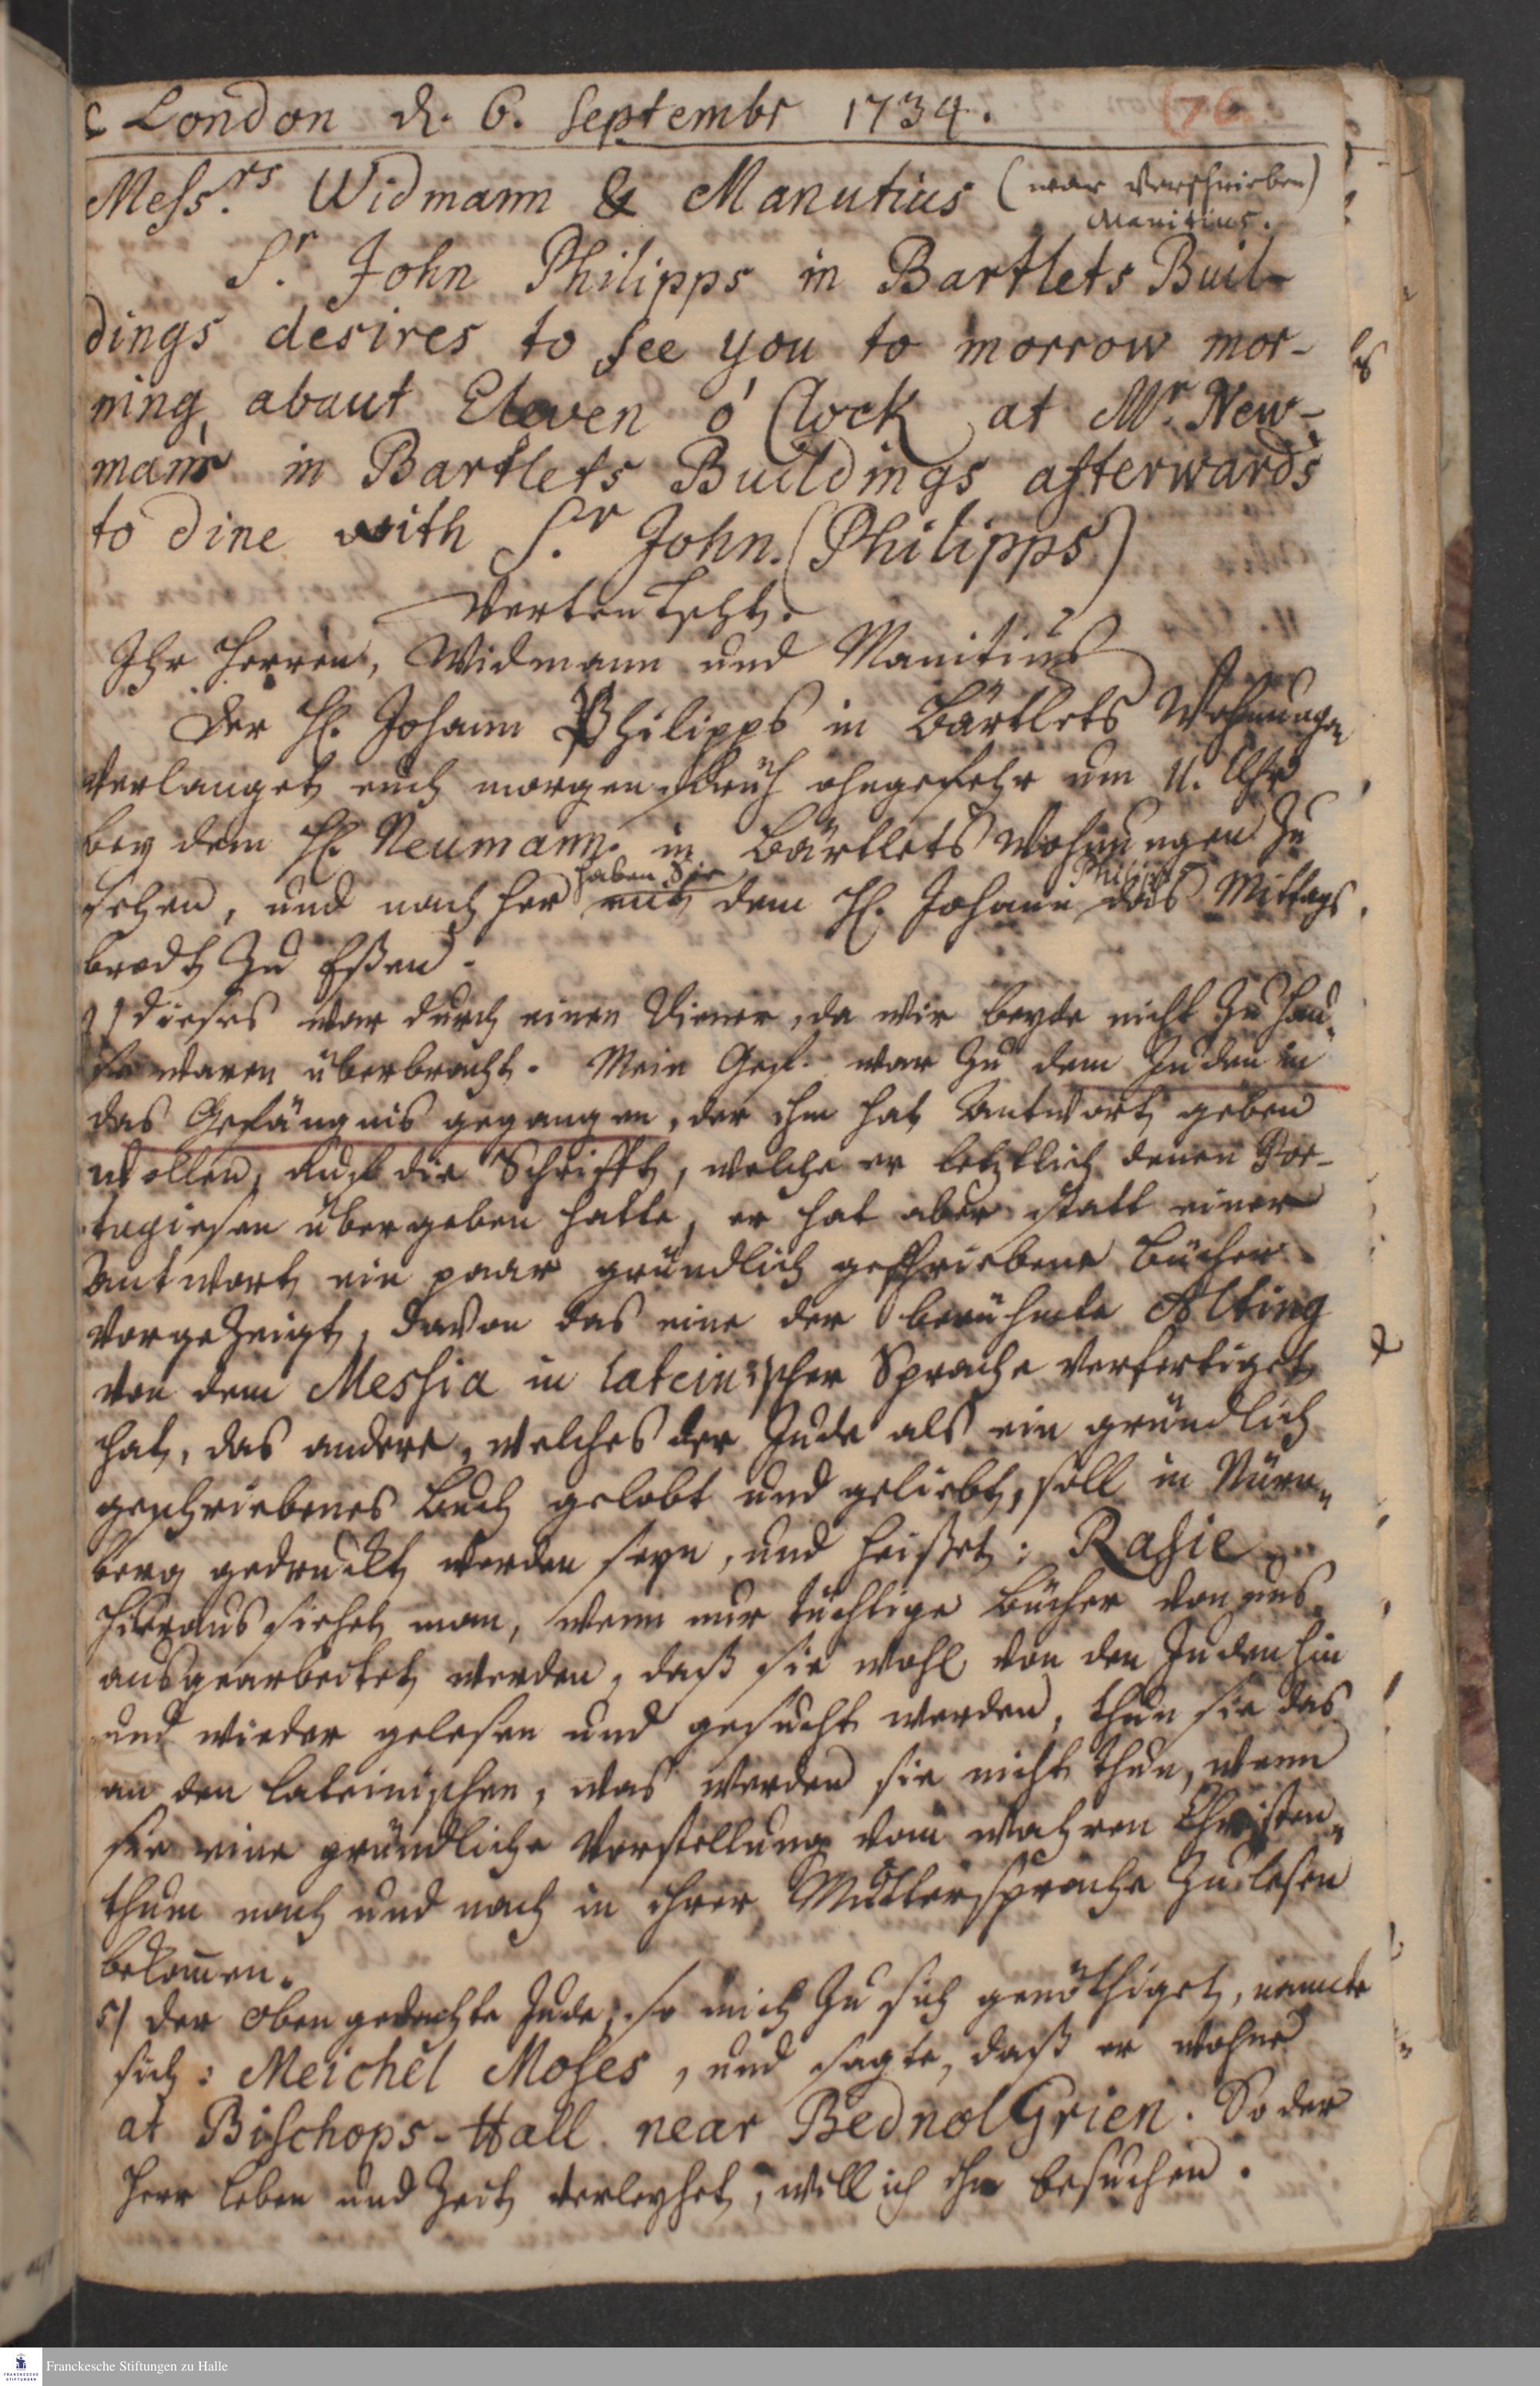 London d. 6. Septembr 1734. (76
Mess.rs Widmann & Manutius (war verschrieben)
Manitius.
S.r John Philipps in Bartlets Buil-
dings desires to see you to morrow mor-
ning, abaut Eleven o' Clock at Mr. New-
mans in Bartlets Buildings afterwards
to dine with S.r John. (Philipps)
Verteutscht.
Ihr Herren, Widmann und Manitius
Der H. Johann Philipps in Bartlets Wohnungen
verlanget euch morgen früh ohngefehr um 11. Uhr
bey dem H. Neumann in Bartlets Wohnungen zu
haben Sie Philipps
sehen, und nach her mit dem H. Johann das Mittags
brodt zu Eßen.
dieses war durch einen Diener, da wir beyde nicht zu Hau-
se waren überbracht. Mein Gef. war zu dem Juden in
das Gefängnis gegangen, der ihm hat Antwort geben
wollen, auf die Schrifft, welche er letztlich denen Por-
tugiesen übergeben hatte, er hat aber statt einer
Antwort ein paar gründlich geschriebene Bücher
vorgezeigt, davon das eine der berühmte Alting
von dem Messia in lateinischer Sprache verfertiget
hat, das andere, welches der Jude als ein gründlich
geschriebenes Buch gelobt und geliebt, soll in Nürn-
berg gedruckt worden seyn, und heißet: Rasie.
Hieraus siehet man, wenn nur tüchtige Bücher von uns
ausgearbeitet werden, daß sie wohl von den Juden hin
und wieder gelesen und gesucht werden, thun sie das
an den lateinischen, was werden sie nicht thun, wenn
sie eine gründliche Vorstellung vom wahren Christen-
thum nach und nach in ihrer Muttersprache zu lesen
bekommen.
5) Der oben gedachte Jude, so mich zu sich genöthiget, nannte
sich: Meichel Moses, und sagte, daß er wohne
at Bischops-Hall near BednolGrien. So der
Herr Leben und Zeit verleyhet, will ich ihn besuchen.
Franckesche Stiftungen zu Halle